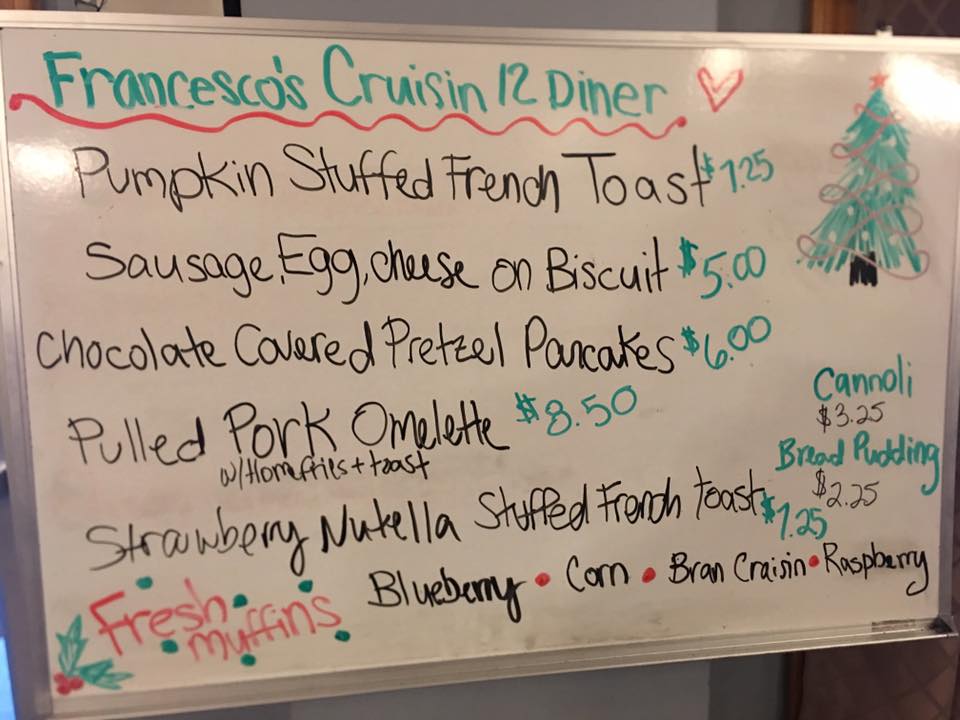 Francesco's Cruisin 12 Diner
Pumpkin Stuffed French Toast $7.25
Sausage, Egg, cheese on Biscuit $5.00
Chocolate Covered Pretzel Pancakes $6.00
Pulled Pork Omelette $8.50
w/Homefries + toast
Strawberry Nutella Stuffed French Toast $7.25
Cannoli
$3.25
Bread Pudding
$2.25
Fresh muffins
Blueberry • Corn • Bran Craisin • Raspberry